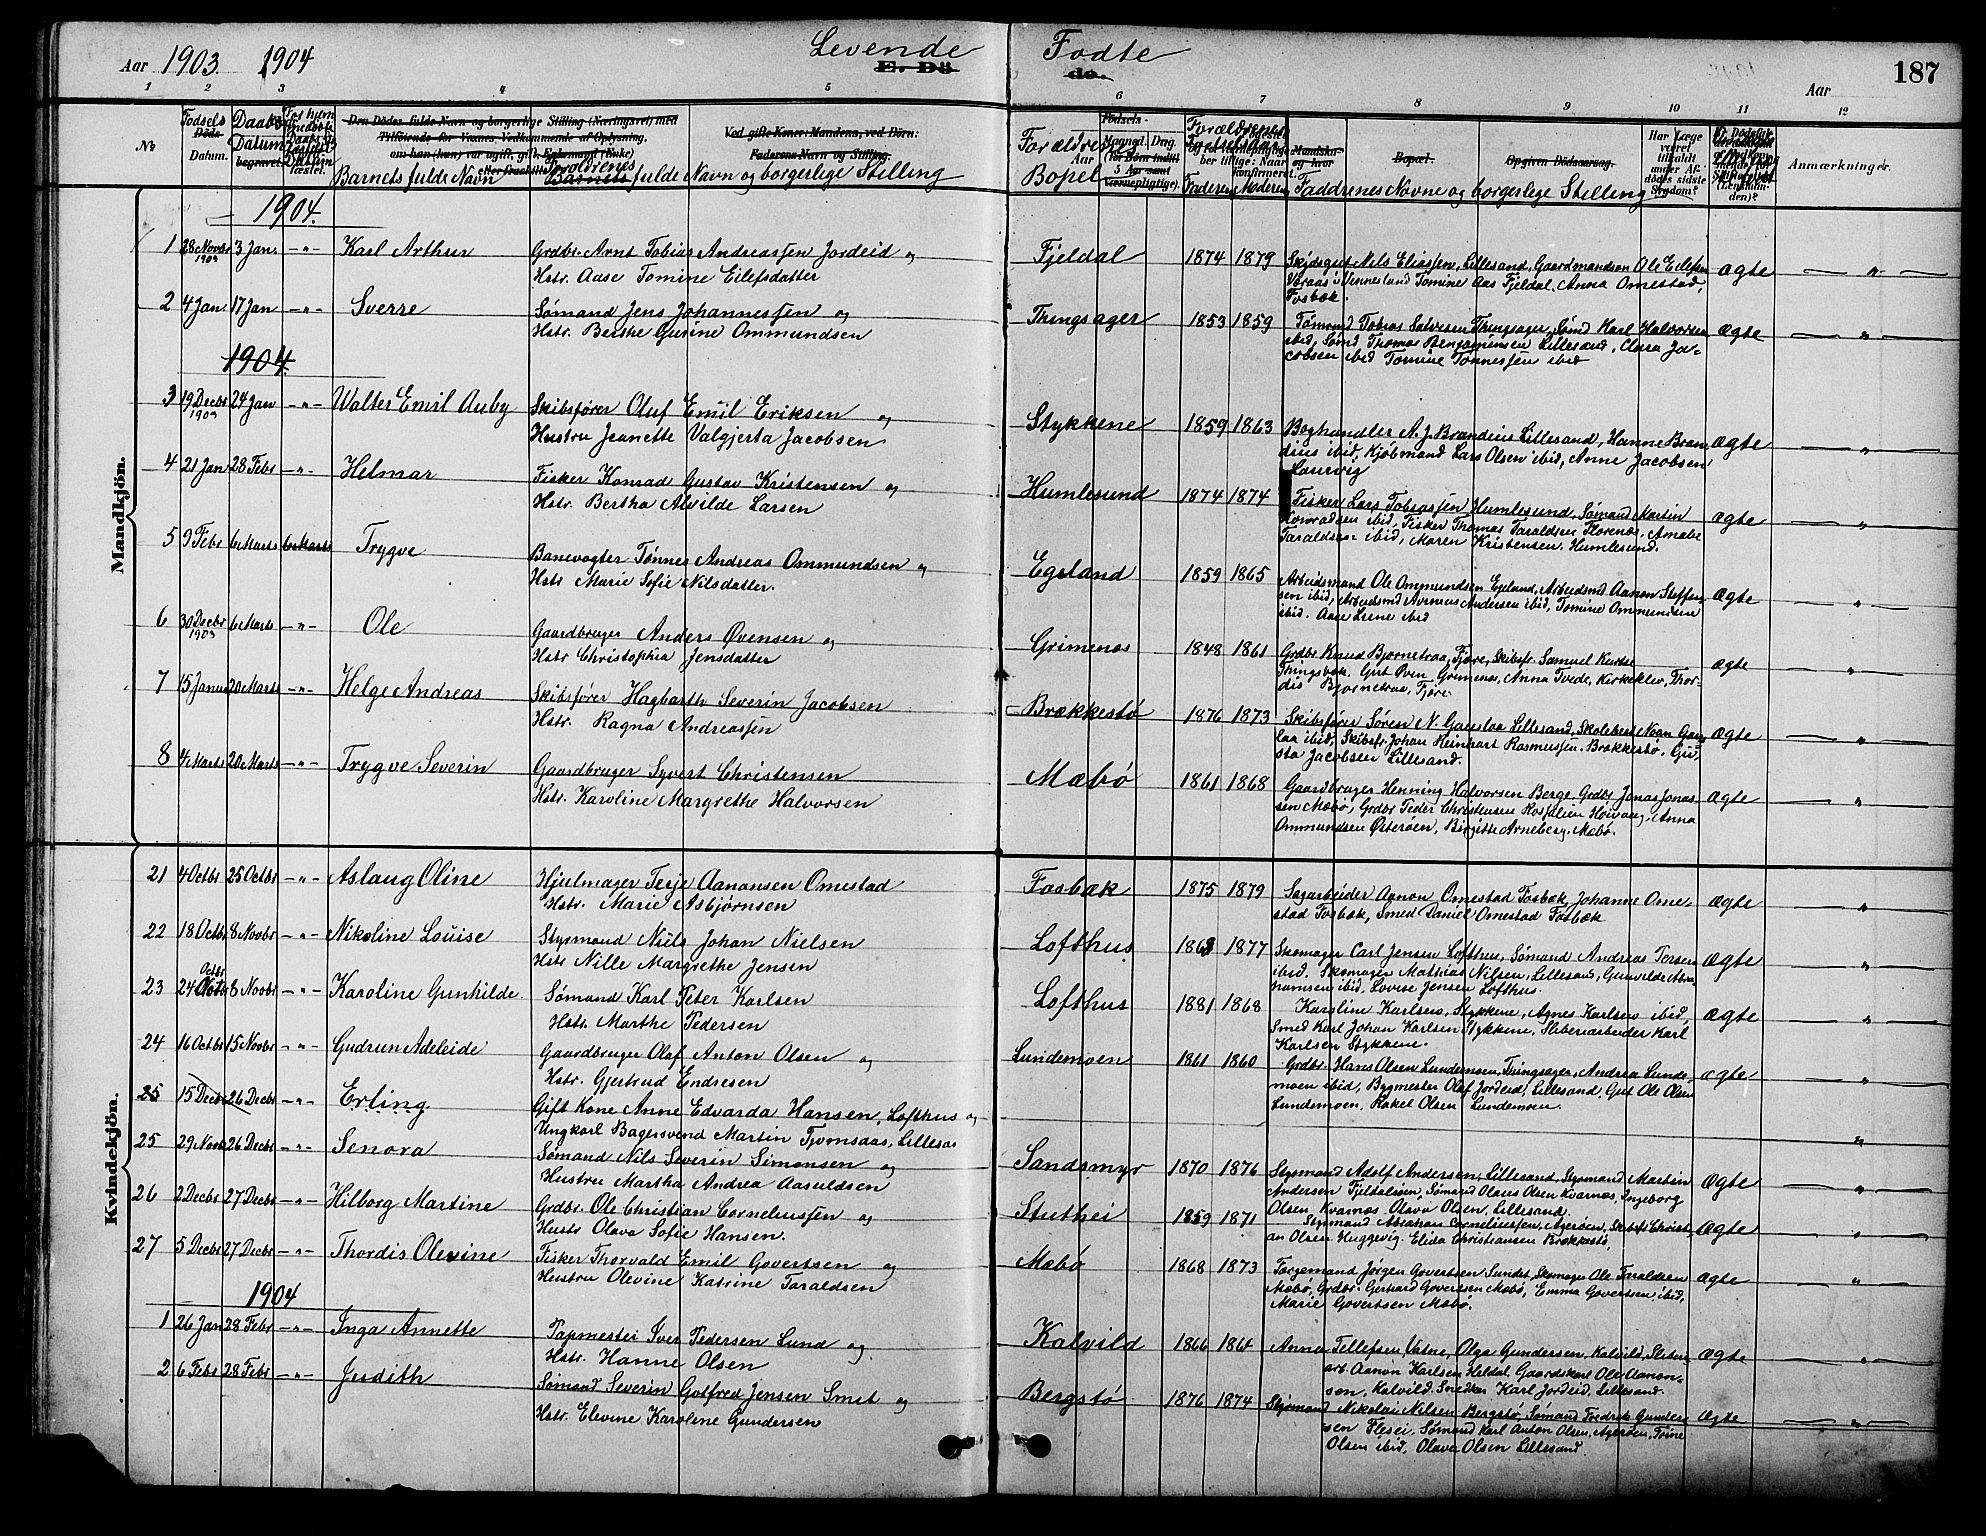 Aar 1903 1904 Levende Fodte Aar 187
E. Dö do.
1 2 3 4 5 6 7 8 9 10 11 12
No Fødsels Datum. Daabs Datum Barnets fulde Navn Forældrenes fulde Navn og borgerlige Stilling
Forældrenes Bopel Faderen Moderen Faddrenes Navne og borgerlige Stilling Anmærkninger.
Den Dödes fulde Navn og borgerlige Stilling (Næringsvei) med
Ved gifte Koner: Mandens, ved Börn:
Faderens Navn og Stilling.
Bopæl. Opgiven Dödsaarsag.
Har Læge været tilkaldt under Afdödes sidste Sygdom?
Mandkjön.
1904.
1 28 Novbr 1903 3 Jan. -"- Karl Arthur Grdbr. Arnt Tobias Andreassen Jordeid og
Hstr. Aase Tomine Eilefsdatter
Fjeldal 1874 1879 Nils Eliassen, Lillesand, Gaardmandsøn Ole Eilefsen
Vennesland Tomine Aas Fjeldal, Anna Omestad,
Fosbæk. Ægte "
2 4 Jan 17 Jan -"- Sverre Sømand Jens Johannessen og
Hstr. Berthe Gurine Ommundsen
Tingsager 1853 1859 Tømmd Tobias Salvesen Thingsager, Sømd Karl Halvorsen
ibid, Sømd Thomas Benjaminsen Lillesand, Clara Ja-
cobsen ibid Tomine Tønnessen ibid Ægte "
1904.
3 19 Decbr 1903 24 Jan -"- Walter Emil Auby Skibsfører Oluf Emil Eriksen og
Hustru Jeanette Valgjerta Jacobsen
Stykkene 1859 1863 Boghandler A. J. Brandius Lillesand, Hanne Bran-
dius ibid, Kjøbmand Lars Olsen ibid, Anne Jacobsen
Laurvig Ægte "
4 21 Jan 28 Febr -"- Helmar Fisker Konrad Gustav Kristensen og
Hstr. Bertha Alvilde Larsen
Humlesund 1874 1874 Fisker Lars Tobiassen Humlesund, Sømand Martin
Konradsen ibid, Fisker Thomas Taraldsen Florenæs, Amalie
Taraldsen ibid, Maren Kristensen, Humlesund. Ægte "
5 9 Febr 6 Marts 6 Marts Trygve Banevogter Tønnes Andreas Ommundsen og
Hstr Marie Sofie Nilsdatter.
Egeland 1859 1865 Arbeidsmand Ole Ommundsen Egeland, Arbeidsmd Aanon Steffen-
sen ibid, Arbeidsmd Andersen ibid, Tomine Ommundsen
ibid. Aase Lrene ibid Ægte "
6 30 Decbr 1903 6 Marts -"- Ole Gaardbruger Anders Øvensen og
Hstr Christophia Jensdatter
Grimenæs 1848 1861 Grdbr Knud Bjornetraa, Fjære, Skibsfr. Samuel
Tingsbæk. Gut Øven Grimenæs, Anna Tvede, Kirkeklev, Thor-
dis Bjornetraa, Fjære. Ægte "
7 15 Januar 20 Marts -"- Helge Andreas Skibsfører Hagbarth Severin Jacobsen
Hstr. Ragna Andreassen
Brækkestø 1876 1873 Skibsfører Søren N. Lillesand,
ibid, Skibsfr. Johan Reinhart Rasmussen, Brækkestø, Gu-
sta Jacobsen Lillesand. Ægte "
8 4 Marts 20 Marts -"- Trygve Severin Gaardbruger Syvert Christensen
Hstr. Karoline Margrethe Halvorsen
Mæbø 1861 1868 Gaardbruger Henning Halvorsen Berge, Grdbr Jonas Jonas-
sen Mæbø, Grdbr Peder Christensen Høivaag, Anna
Ommundsen Østerøen, Birgitte Arneberg, Mæbø. Ægte "
Kvindekjön.
21 4 Octbr 25 Octbr -"- Aslaug Oline Hjulmager Terje Aanonsen Omestad
Hstr. Marie Asbjørnsen
Fosbæk 1875 1879 Sagarbeider Aanon Omestad Fosbæk Johanne Ome-
stad Fosbæk, Smed Daniel Omestad Fosbæk Ægte "
22 18 Octbr 8 Novbr -"- Nikoline Louise Styrmand Niels Johan Nielsen
Hstr Nille Margrethe Jensen
Lofthus 1877 Skomager Carl Jensen Lofthus, Sømand Andreas Torsen
ibid. Skomager Mathias Nilsen, Lillesand, Gunvilde Abra-
hamsen ibid, Lovise Jensen Lofthus. Ægte "
23 24 Octbr 8 Novbr -"- Karoline Gunhilde. Sømand Karl Peter Karlsen
Hstr. Marthe Pedersen
Lofthus 1881 1868 Karoline Karlsen, Stykkene, Agnes Karlsen ibid,
Smed Karl Johan Karlsen Stykkene, Sliberiarbeider Karl
Karlsen Stykkene. Ægte "
24 16 Octbr 15 Novbr -"- Gudrun Adeleide Gaardbruger Olaf Anton Olsen og
Hstr. Gjertrud Endresen
Lundemoen 1861 1860 Grdbr. Hans Olsen Lundemoen, Thingsager, Andrea Lunde-
moen ibid, Bygmester Olaf Jordeid, Lillesand, Gut Ole Olsen
Lundemoen, Rakel Olsen Lundemoen. Ægte "
25 15 Decbr 26 Decbr -"- Erling Gift Kone Anne Edvarda Hansen, Lofthus og
Ungkarl Bagersvend Martin Tjomsaas, Lillesand "
25 29 Novbr 26 Decbr -"- Senora Sømand Nils Severin Simonsen og
Hustru Martha Andrea Aasuldsen
Sandsmyr 1870 1876 Styrmand Adolf Andersen, Lillesand, Styrmand Martin
Andersen Fjeldaløen, Sømand Olaus Olsen Kvarnæs, Ingeborg
Olsen Kvarnæs Olava Olsen, Lillesand. Ægte "
26 2 Decbr 27 Decbr -"- Hilborg Martine Grdbr. Ole Christian Corneliussen og
Hustr Olava Sofie Hansen.
Stuthei 1859 1871 Styrmand Abraham Corneliussen, Agerøen, Skibsfr Christi-
an Olsen Huggevig. Elida Christiansen Brækkestø, Ægte "
27 5 Decbr 27 Decbr -"- Thordis Olevine Fisker Thorvald Emil Govertsen og
Hustru Olevine Katrine Taraldsen
Mæbø 1868 1873 Færgemand Jørgen Govertsen Sundet, Skomager Ole Taraldsen
Mæbø, Grdbr. Gerhard Govertsen Mæbø, Emma Govertsen ibid,
Marie Govertsen Mæbø. Ægte "
1904
1 26 Jan 28 Febr -"- Inga Annette Papmester Iver Pedersen Lund og
Hstr. Hanne Olsen
Kalvild 1866 1864 Anna Tellefsen, Vatne, Olga Gundersen, Kalvild, Sliberi-
arb. Aanon Karlsen Heldal, Gaardskarl Ole Aanon-
sen, Kalvild. Snedker Karl Jordeid, Lillesand. Ægte "
2 6 Febr 28 Febr -"- Judith Sømand Severin Gotfred Jensen Smit og
Hstr. Elevine Karoline Gundersen
Bergstø 1876 1874 Styrmand Nikolai Nilsen Bergstø, Sømand Fredrik Gunder-
sen Flesei, Sømand Karl Anton Olsen, Agerøen, Tomine
Olsen ibid, Olava Olsen Lillesand. Ægte "